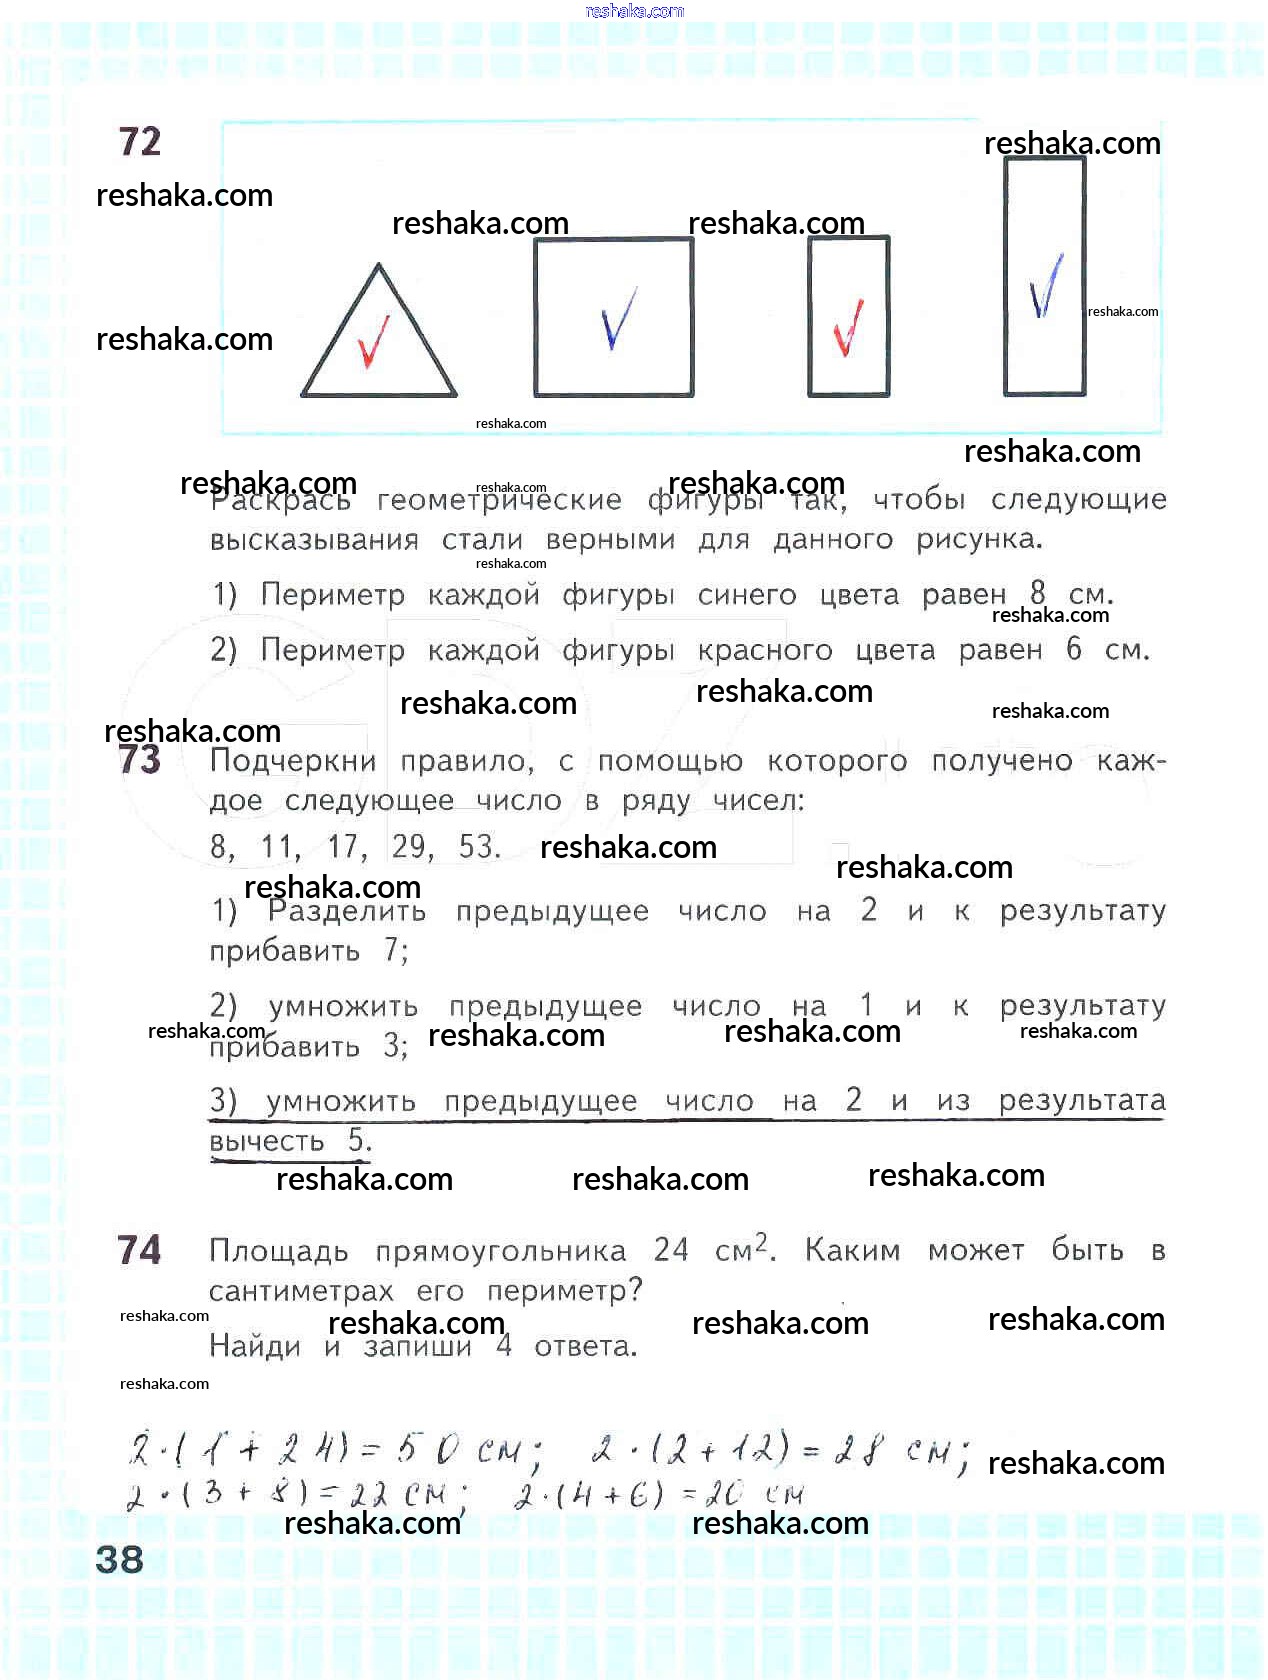 reshaka.com
72
reshaka.com
reshaka.com
reshaka.com reshaka.com
reshaka.com
reshaka.com
reshaka.com
reshaka.com
reshaka.com reshaka.com reshaka.com
Раскрась геометрические фигуры так, чтобы следующие
высказывания стали верными для данного рисунка.
reshaka.com
1) Периметр каждой фигуры синего цвета равен 8 см.
reshaka.com
2) Периметр каждой фигуры красного цвета равен 6 см.
GDZ
reshaka.com reshaka.com reshaka.com
reshaka.com
73 Подчеркни правило, с помощью которого получено каж-
дое следующее число в ряду чисел:
8, 11, 17, 29, 53. reshaka.com
reshaka.com
reshaka.com
1) Разделить предыдущее число на 2 и к результату
прибавить 7;
2) умножить предыдущее число на 1 и к результату
reshaka.com reshaka.com reshaka.com reshaka.com
прибавить 3;
3) умножить предыдущее число на 2 и из результата
вычесть 5.
reshaka.com reshaka.com reshaka.com
74 Площадь прямоугольника 24 см². Каким может быть в
сантиметрах его периметр?
reshaka.com reshaka.com reshaka.com reshaka.com
Найди и запиши 4 ответа.
reshaka.com
2·(1+24)=50 см; 2·(2+12)=28 см;
reshaka.com
2·(3+8)=22 см; 2·(4+6)=20 см
reshaka.com reshaka.com
38